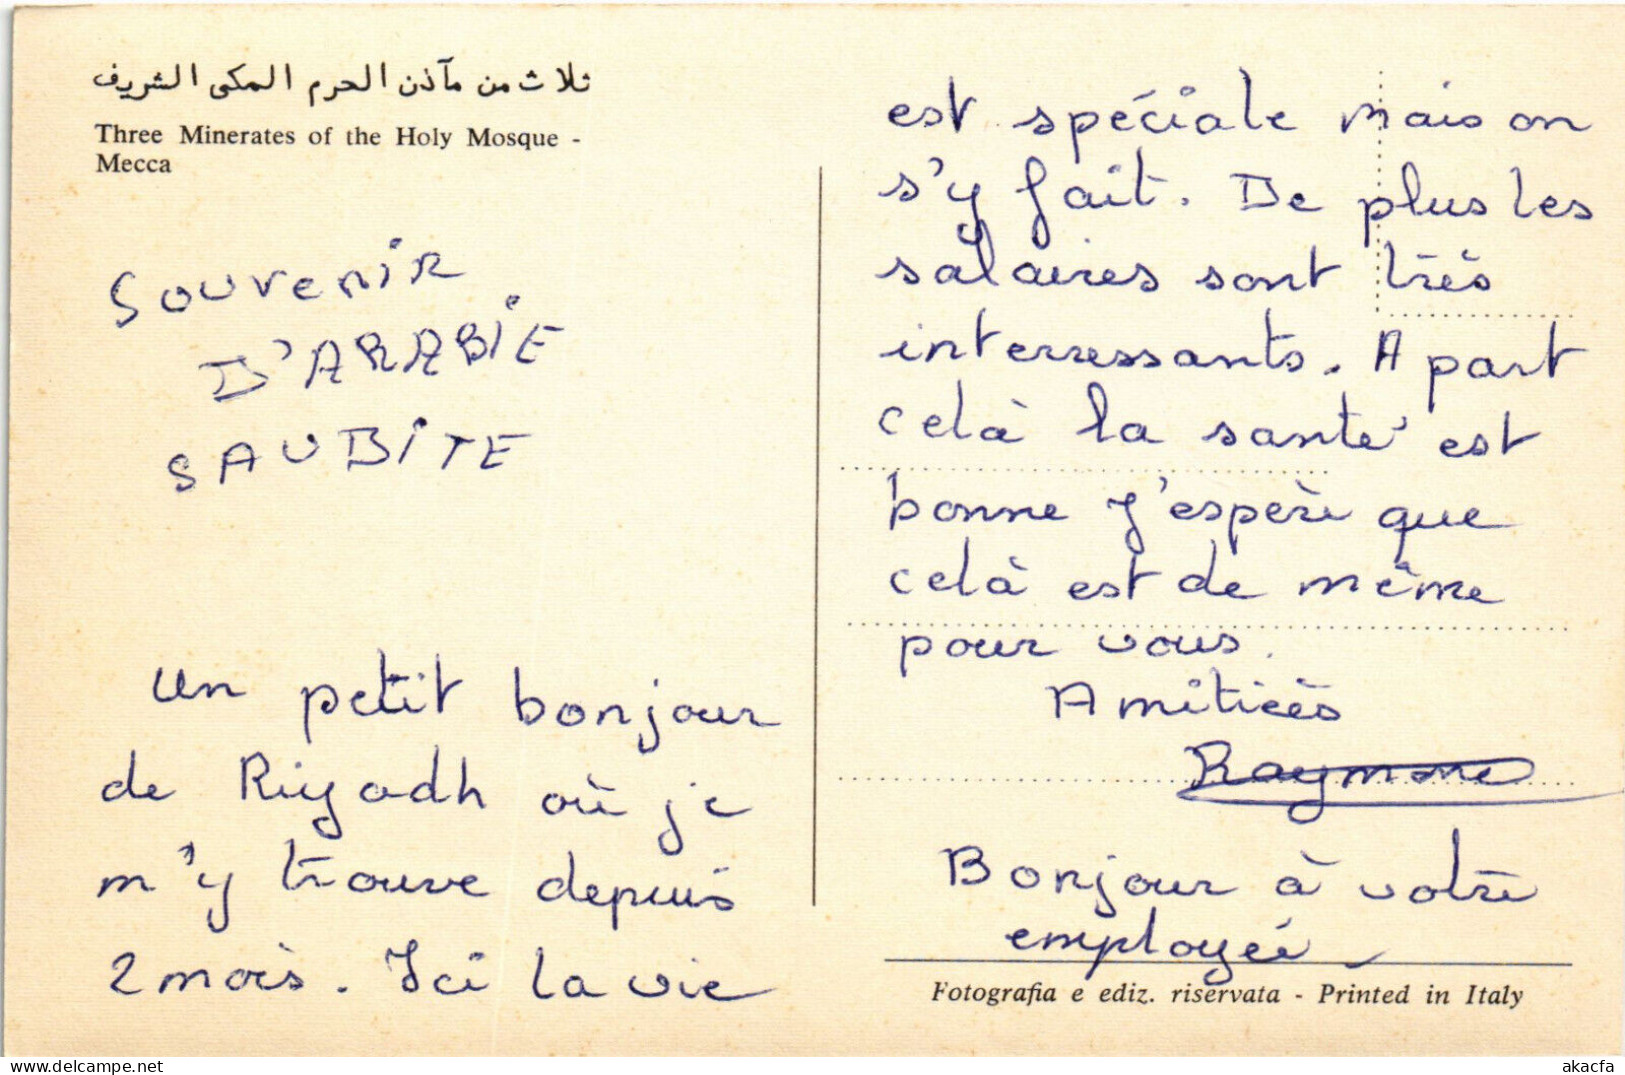 ثلاث من مآذن الحرم المكى الشريف
Three Minerates of the Holy Mosque -
Mecca
Souvenir
D'ARABIE
SAUDITE
un petit bonjour
de Riyadh où je
m'y trouve depuis
2 mois. Ici la vie
est spéciale mais on
s'y fait. De plus les
salaires sont très
interressants. A part
celà la santé est
bonne J'espère que
celà est de même
pour vous.
Amitiées
Raymone
Bonjour à votre
employée
Fotografia e ediz. riservata - Printed in Italy
www.delcampe.net
akacfa